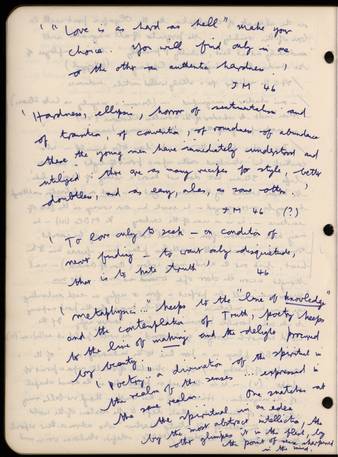 ' "Love is as hard as hell" make your
choice. You will find only in one
or the other an authentic hardness '
J M 46
' Hardness, ellipse, horror of sentimentalism and
of transition, of convention, of roundness of abundance
these the young men have immediately understood and
utilized : these are as many recipes for style, better
doubtless, and as easy, alas, as some others. '
J M 46 (?)
' To love only to seek – on condition of
never finding – to want only disquietude,
this is to hate truth ' 46
' metaphysic..." keeps to the "line of knowledge"
and the contemplation of Truth, poetry keeps
to the line of making and the delight procured
by beauty '
' Poetry" a divination of the spiritual in
the realm of the senses ... expressed in
the same realm... One snatches at
the spiritual in an idea
by the most abstract intellection, the
other glimpses it in the flesh, by
the point of sense sharpened
in the mind.